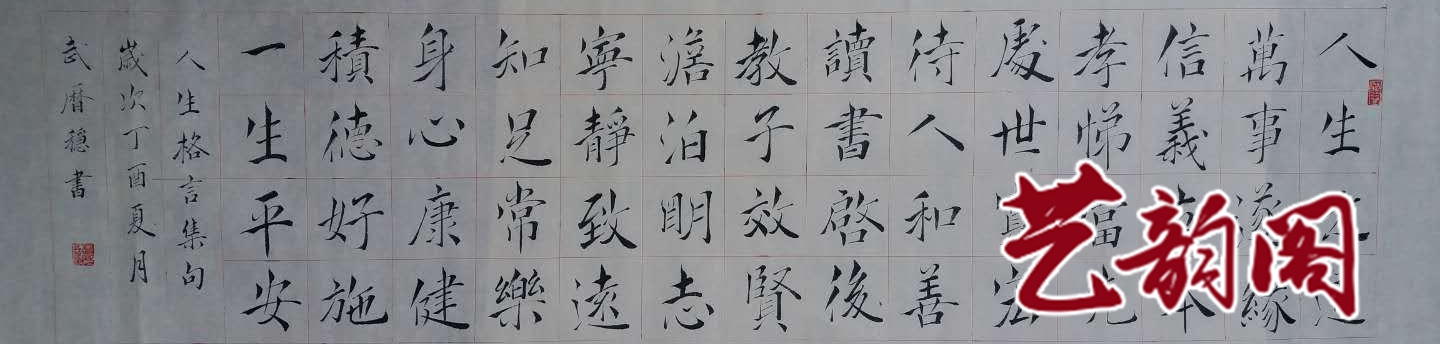 人生
萬事緣
信義
孝悌
處世寬宏
待人和善
讀書啓後
教子效賢
澹泊明志
寧靜致遠
知足常樂
身心康健
積德好施
一生平安
人生格言集句
歲次丁酉夏月
武曆穩書
艺韵阁